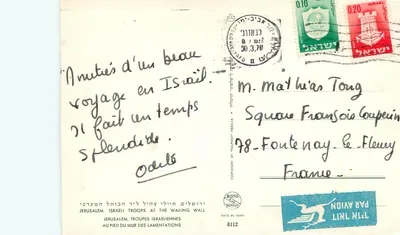 Amitiés d'un beau
voyage en Israël.
Il fait un temps
splendide.
Odile
M. Mathias Tong
Square François Couperin
78-Fontenay-le-Fleury
France
0.10
0.20
ישראל
ישראל
30.3.70
דואר אויר
PAR AVION
ירושלים, חיילי צה"ל ליד הכותל המערבי
JERUSALEM, ISRAELI TROOPS AT THE WAILING WALL
JERUSALEM, TROUPES ISRAELIENNES
AU PIED DU MUR DES LAMENTATIONS
8112